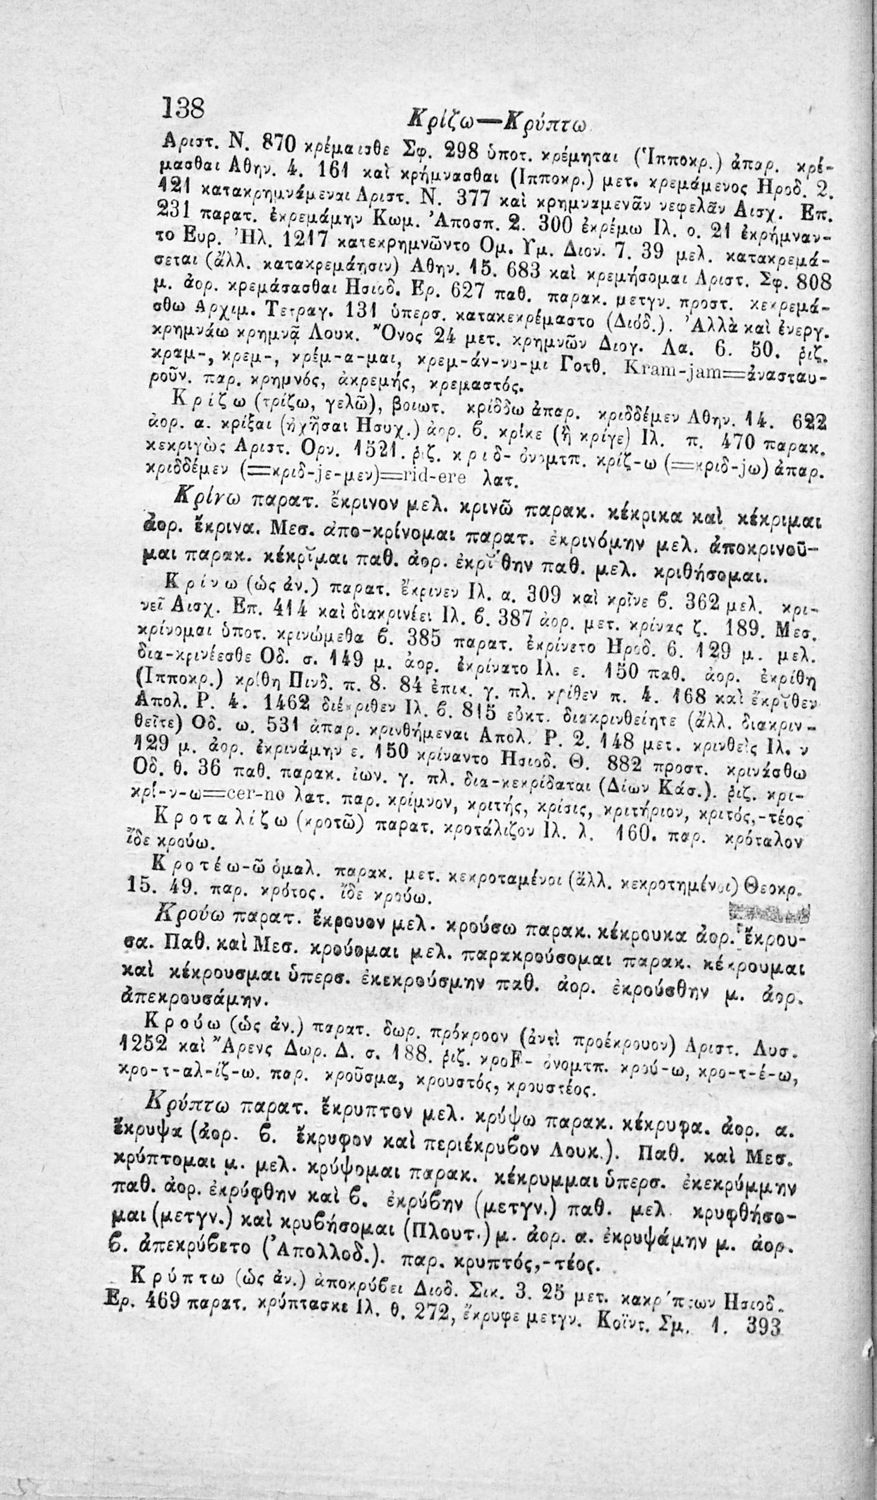 138
Κρίζω—Κρύπτω
Αριστ. Ν. 870 κρέμαισθε Σφ. 298 ὑποτ. κρέμηται (Ἱπποκρ.) ἀπαρ. κρέ-
μασθαι Αθην. 4. 161 καὶ κρήμνασθαι (Ιπποκρ.) μετ. κρεμάμενος Ηροδ. 2.
121 κατακρημνάμεναι Αριστ. Ν. 377 καὶ κρημναμενᾶν νεφελᾶν Αισχ. Επ.
231 παρατ. ἐκρεμάμην Κωμ. Ἀποσπ. 2. 300 ἐκρέμω Ιλ. ο. 21 ἐκρήμναν-
το Ευρ. Ἠλ. 1217 κατεκρημνῶντο Ομ. Υμ. Διον. 7. 39 μελ. κατακρεμά-
σεται (ἄλλ. κατακρεμάησιν) Αθην. 15. 683 καὶ κρεμήσομαι Αριστ. Σφ. 808
μ. ἀορ. κρεμάσασθαι Ησιοδ. Ερ. 627 παθ. παρακ. μετγν. προστ. κεκρεμά-
σθω Αρχιμ. Τετραγ. 131 ὑπερσ. κατακεκρέμαστο (Διόδ.). Ἀλλὰ καὶ ἐνεργ.
κρημνάω κρημνᾷ Λουκ. Ὄνος 24 μετ. κρημνῶν Διογ. Λα. 6. 50. ῥιζ.
κραμ-, κρεμ-, κρέμ-α-μαι, κρεμ-άν-νυ-μι Γοτθ. Kram-jam=ἀνασταυ-
ροῦν. παρ. κρημνός, ἀκρεμής, κρεμαστός.
Κρίζω (τρίζω, γελῶ), βοιωτ. κρίδδω ἀπαρ. κριδδέμεν Αθην. 14. 622
ἀορ. α. κρίξαι (ἠχῆσαι Ησυχ.) ἀορ. ϐ. κρίκε (ἢ κρίγε) Ιλ. π. 470 παρακ.
κεκριγὼς Αριστ. Ορν. 1521. ῥιζ. κριδ- ὀνομτπ. κρίζ-ω (=κριδ-jω) ἀπαρ.
κριδδέμεν (=κριδ-je-μεν)=rid-ere λατ.
Κρίνω παρατ. ἔκρινον μελ. κρινῶ παρακ. κέκρικα καὶ κέκριμαι
ἀορ. ἔκρινα. Μεσ. ἀπο-κρίνομαι παρατ. ἐκρινόμην μελ. ἀποκρινοῦ-
μαι παρακ. κέκρῐμαι παθ. ἀορ. ἐκρῐ́θην παθ. μελ. κριθήσομαι.
Κρίνω (ὡς ἀν.) παρατ. ἔκρινεν Ιλ. α. 309 καὶ κρῖνε ϐ. 362 μελ. κρι-
νεῖ Αισχ. Επ. 414 καὶ διακρινέει Ιλ. ϐ. 387 ἀορ. μετ. κρίνας ζ. 189. Μεσ.
κρίνομαι ὑποτ. κρινώμεθα ϐ. 385 παρατ. ἐκρίνετο Ηροδ. 6. 129 μ. μελ.
δια-κρινέεσθε Οδ. σ. 149 μ. ἀορ. ἐκρίνατο Ιλ. ε. 150 παθ. ἀορ. ἐκρίθη
(Ιπποκρ.) κρίθη Πινδ. π. 8. 84 ἐπικ. γ. πλ. κρίθεν π. 4. 168 καὶ ἔκρῐθεν
Απολ. Ρ. 4. 1462 διέκριθεν Ιλ. ϐ. 815 εὐκτ. διακρινθείητε (ἄλλ. διακριν-
θεῖτε) Οδ. ω. 531 ἀπαρ. κρινθήμεναι Απολ. Ρ. 2. 148 μετ. κρινθεὶς Ιλ. ν
129 μ. ἀορ. ἐκρινάμην ε. 150 κρίναντο Ησιοδ. Θ. 882 προστ. κρινάσθω
Οδ. θ. 36 παθ. παρακ. ἰων. γ. πλ. δια-κεκρίδαται (Δίων Κάσ.). ῥιζ. κρι-
κρί-ν-ω=cer-no λατ. παρ. κρίμνον, κριτής, κρίσις, κριτήριον, κριτός,-τέος
Κροταλίζω (κροτῶ) παρατ. κροτάλιζον Ιλ. λ. 160. παρ. κρόταλον
ἴδε κρούω.
Κροτέω-ῶ ὁμαλ. παρακ. μετ. κεκροταμένοι (ἄλλ. κεκροτημένοι) Θεοκρ.
15. 49. παρ. κρότος. ἴδε κρούω.
Κρούω παρατ. ἔκρουον μελ. κρούσω παρακ. κέκρουκα ἀορ. ἔκρου-
σα. Παθ. καὶ Μεσ. κρούομαι μελ. παρακρούσομαι παρακ. κέκρουμαι
καὶ κέκρουσμαι ὑπερσ. ἐκεκρούσμην παθ. ἀορ. ἐκρούσθην μ. ἀορ.
ἀπεκρουσάμην.
Κρούω (ὡς ἀν.) παρατ. δωρ. πρόκροον (ἀντὶ προέκρουον) Αριστ. Λυσ.
1252 καὶ Ἄρενς Δωρ. Δ. σ. 188. ῥιζ. κροF- ὀνομτπ. κρού-ω, κρο-τ-έ-ω,
κρο-τ-αλ-ίζ-ω. παρ. κροῦσμα, κρουστός, κρουστέος.
Κρύπτω παρατ. ἔκρυπτον μελ. κρύψω παρακ. κέκρυφα. ἀορ. α.
ἔκρυψα (ἀορ. ϐ. ἔκρυφον καὶ περιέκρυϐον Λουκ.). Παθ. καὶ Μεσ.
κρύπτομαι μ. μελ. κρύψομαι παρακ. κέκρυμμαι ὑπερσ. ἐκεκρύμμην
παθ. ἀορ. ἐκρύφθην καὶ ϐ. ἐκρύϐην (μετγν.) παθ. μελ. κρυφθήσο-
μαι (μετγν.) καὶ κρυϐήσομαι (Πλουτ.) μ. ἀορ. α. ἐκρυψάμην μ. ἀορ.
ϐ. ἀπεκρύϐετο (Ἀπολλοδ.). παρ. κρυπτός,-τέος.
Κρύπτω (ὡς ἀν.) ἀποκρύϐει Διοδ. Σικ. 3. 25 μετ. κακρύπτων Ησιοδ.
Ερ. 469 παρατ. κρύπτασκε Ιλ. θ. 272, ἔκρυφε μετγν. Κοϊντ. Σμ. 1. 393